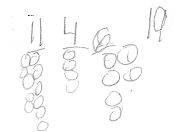 11 4 6 19